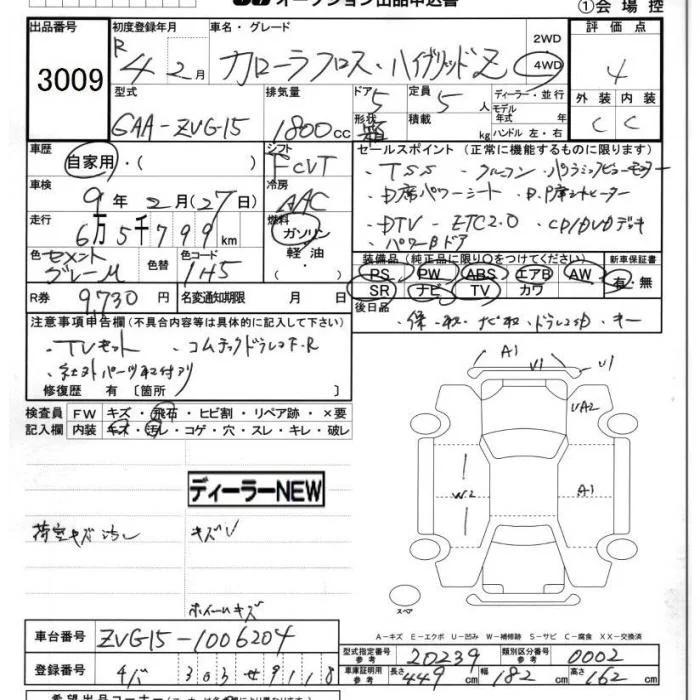 オークション出品申込書
①会場控
出品番号 3009
初度登録年月 R4 2月
車名・グレード カローラクロス・ハイブリッドZ
2WD 4WD
評価点 4
外装 C 内装 C
型式 6AA-ZVG15
排気量 1800cc
ドア 5 形状 箱
定員 5人 積載 kg
ディーラー・並行
モデル年式 年式
ハンドル 左・右
車歴 自家用・( )
シフト FCVT
車検 9年2月(27日)
冷房 AAC
走行 6万5千799km
燃料 ガソリン 軽油 ( )
色 セメントグレーM
色替
色コード 1H5
R券 9,730円
名変通知期限 月 日
セールスポイント (正常に機能するものに限ります)
・TSS ・クルコン ・パノラミックビューモニター
・D席パワーシート ・D.P席シートヒーター
・DTV ・ETC2.0 ・CD/DVDデッキ
・パワーBドア
装備品(純正品に限り○をつけてください)
PS PW ABS エアB AW
SR ナビ TV カワ
新車保証書 有・無
後日品 ・保・取・ナビ取・ドラレコ取・キー
注意事項申告欄(不具合内容等は具体的に記入して下さい)
・TVキット ・コムテックドラレコF.R
・社外パーツ取付け
修復歴 有〔箇所 〕
検査員記入欄
FW キズ・飛石・ヒビ割・リペア跡・×要
内装 キズ・汚レ・コゲ・穴・スレ・キレ・破レ
ディーラーNEW
荷室キズ汚レ
キズV
ホイールキズ
A1
V1
U1
UA2
W2
A1
スペア
A-キズ E-エクボ U-凹み W-補修跡 S-サビ C-腐食 XX-交換済
車台番号 ZVG15-1006204
登録番号
型式指定番号 参考 20239
類別区分番号 参考 0002
車庫証明用 参考 長さ 449 cm 幅 182 cm 高さ 162 cm
希望出品コーナー